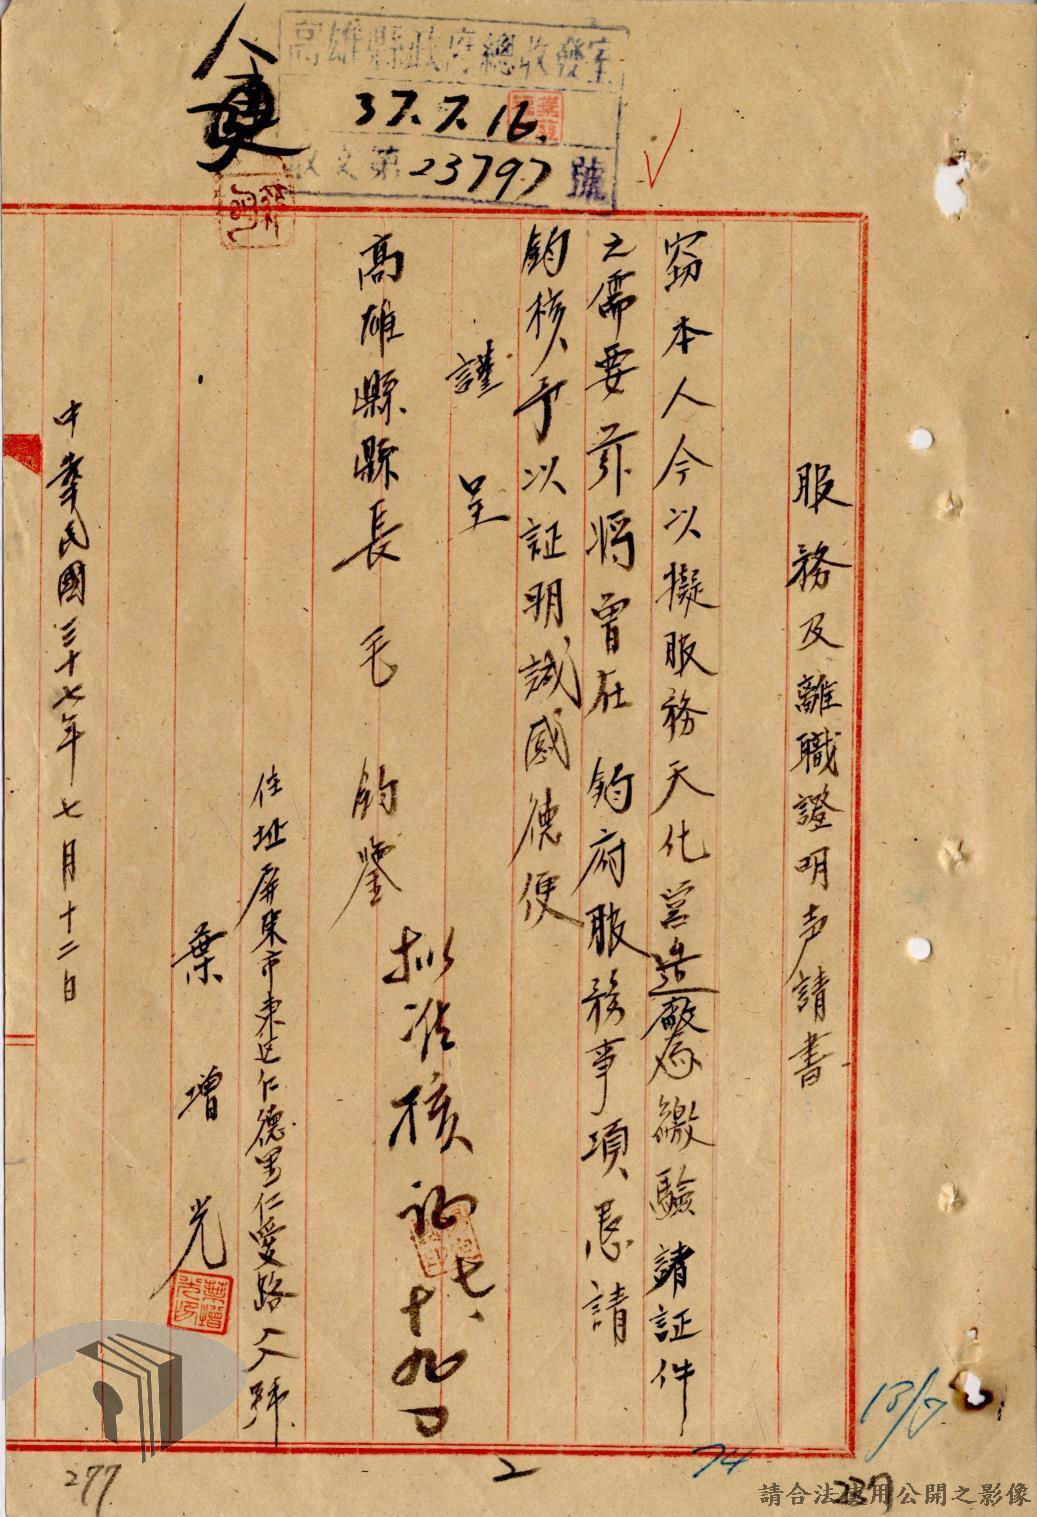 高雄縣政府總收發室
37.7.16.
收文第23797號
服務及離職證明声請書
窃本人今以擬服務天化営造廠為繳驗諸証件
之需要茲將曾在 鈞府服務事項恳請
鈞核予以証明誠感德便
謹呈
高雄縣縣長 毛 鈞鑒
拟准核
七、十九
住址屏東市東区仁德里仁愛路 号
葉增光
葉增光印
中華民國三十七年七月十二日
277
2
74
237
請合法使用公開之影像